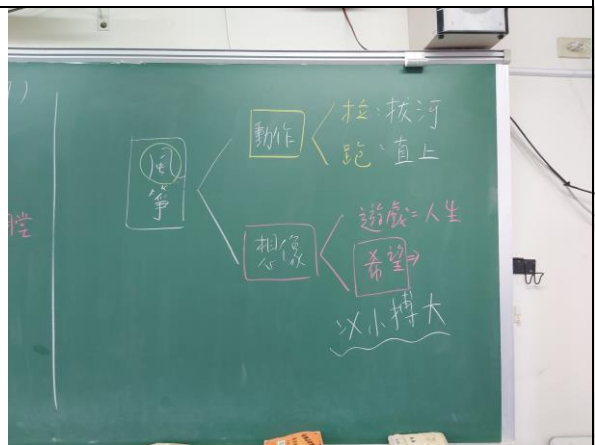 風箏
動作
拉:拔河
跑:直上
想像
遊戲=人生
希望⇒
以小搏大